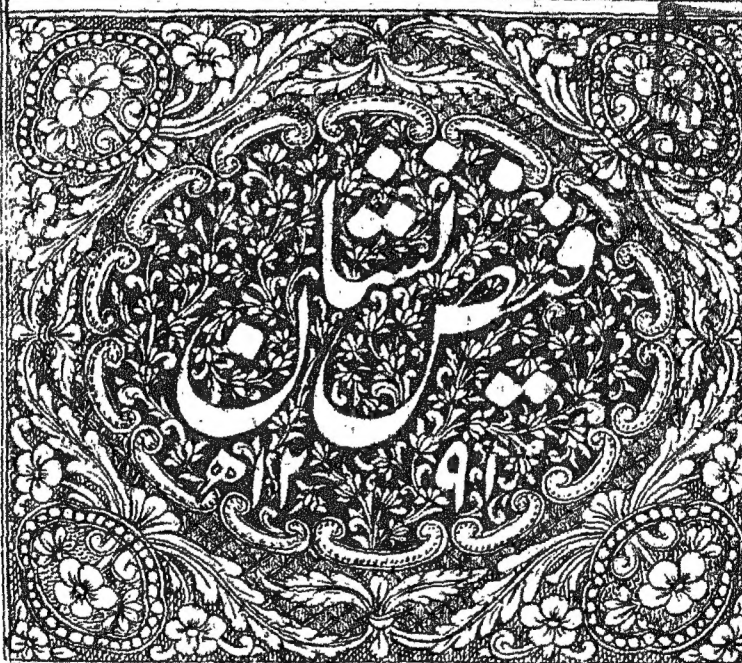 فیض نشان
۱۲۹۱ھ